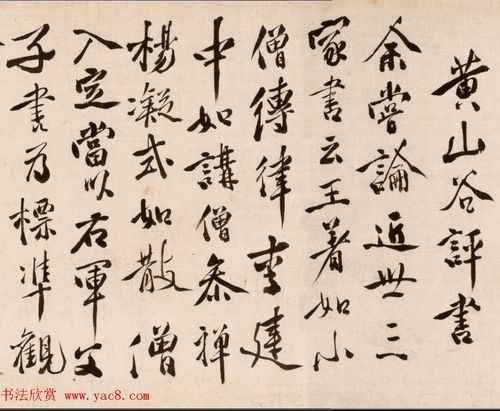 黄山谷評書
余嘗論近世三
家書云王著如小
僧縛律李建
中如講僧叅禅
楊凝式如散僧
入定當以右軍父
子書為標準觀
书法欣赏 www.yac8.com